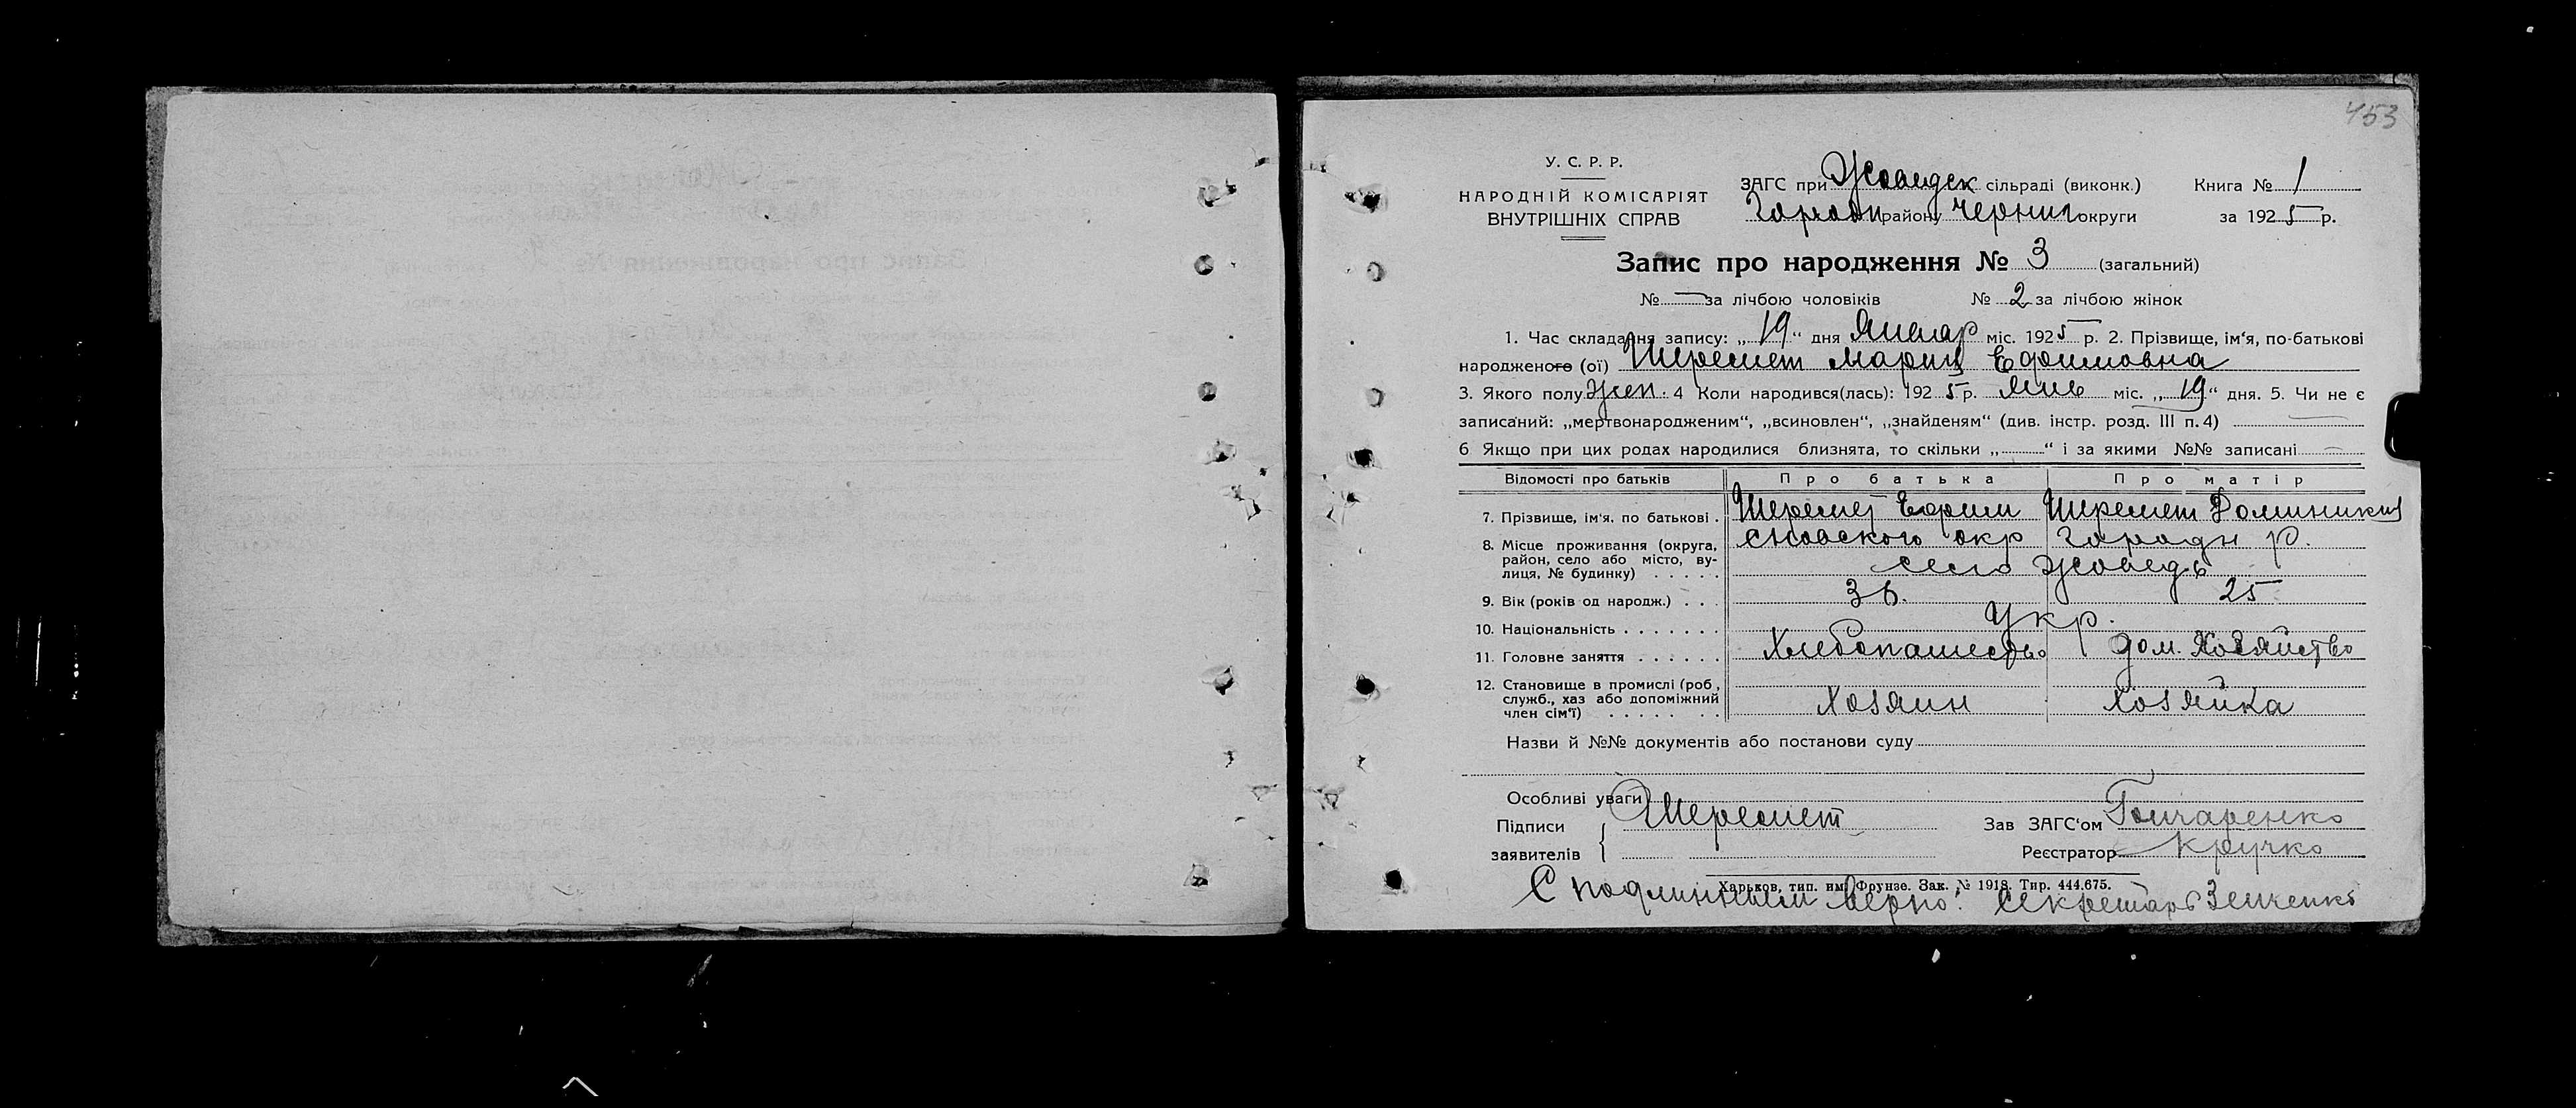 453
У. С. Р. Р.
НАРОДНІЙ КОМІСАРІЯТ
ВНУТРІШНІХ СПРАВ
ЗАГС при Жоведск сільраді (виконк.) Книга № 1
Городн району Черниг округи за 1925 р.
Запис про народження № 3 (загальний)
№ — за лічбою чоловіків № 2 за лічбою жінок
1. Час складання запису: „19“ дня Январ міс. 1925 р. 2. Прізвище, ім'я, по-батькові
народженого (ої) Шеремет Мария Ефимовна
3. Якого полу жен. 4 Коли народився(лась): 1925 р. Янв міс. „19“ дня. 5. Чи не є
записаний: „мертвонародженим“, „всиновлен“, „знайденям“ (див. інстр. розд. III п. 4) —
6 Якщо при цих родах народилися близнята, то скільки „......“ і за якими №№ записані —
Відомості про батьків Про батька Про матір
7. Прізвище, ім'я, по батькові . Шеремет Ефим Шеремет Доминикия
8. Місце проживання (округа, район, село або місто, вулиця, № будинку) . . . . . Сновского окр Городн р.
село Жоведь
9. Вік (років од народж.) . . . 36. 25
10. Національність . . . . . . . Укр.
11. Головне заняття . . . . . . Хлебопашество дом. Хозяйство
12. Становище в промислі (роб., служб., хаз або допоміжний член сім'ї) . . . . . . . Хозяин Хозяйка
Назви й №№ документів або постанови суду
Особливі уваги
Підписи Шеремет Зав ЗАГС'ом Гончаренко
заявителів Реєстратор Кручко
Харьков, тип. им. Фрунзе. Зак. № 1918. Тир. 444.675.
С подлинным верно: Секретарь Зенченко